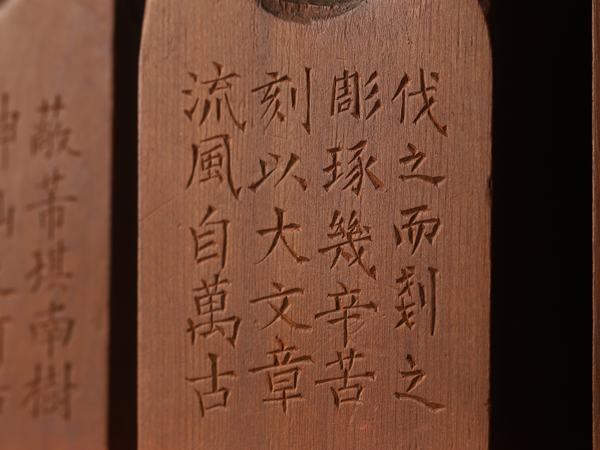 伐之而之
彫琢幾辛苦
刻以大文章
流風自萬古
蔽芾琪南樹